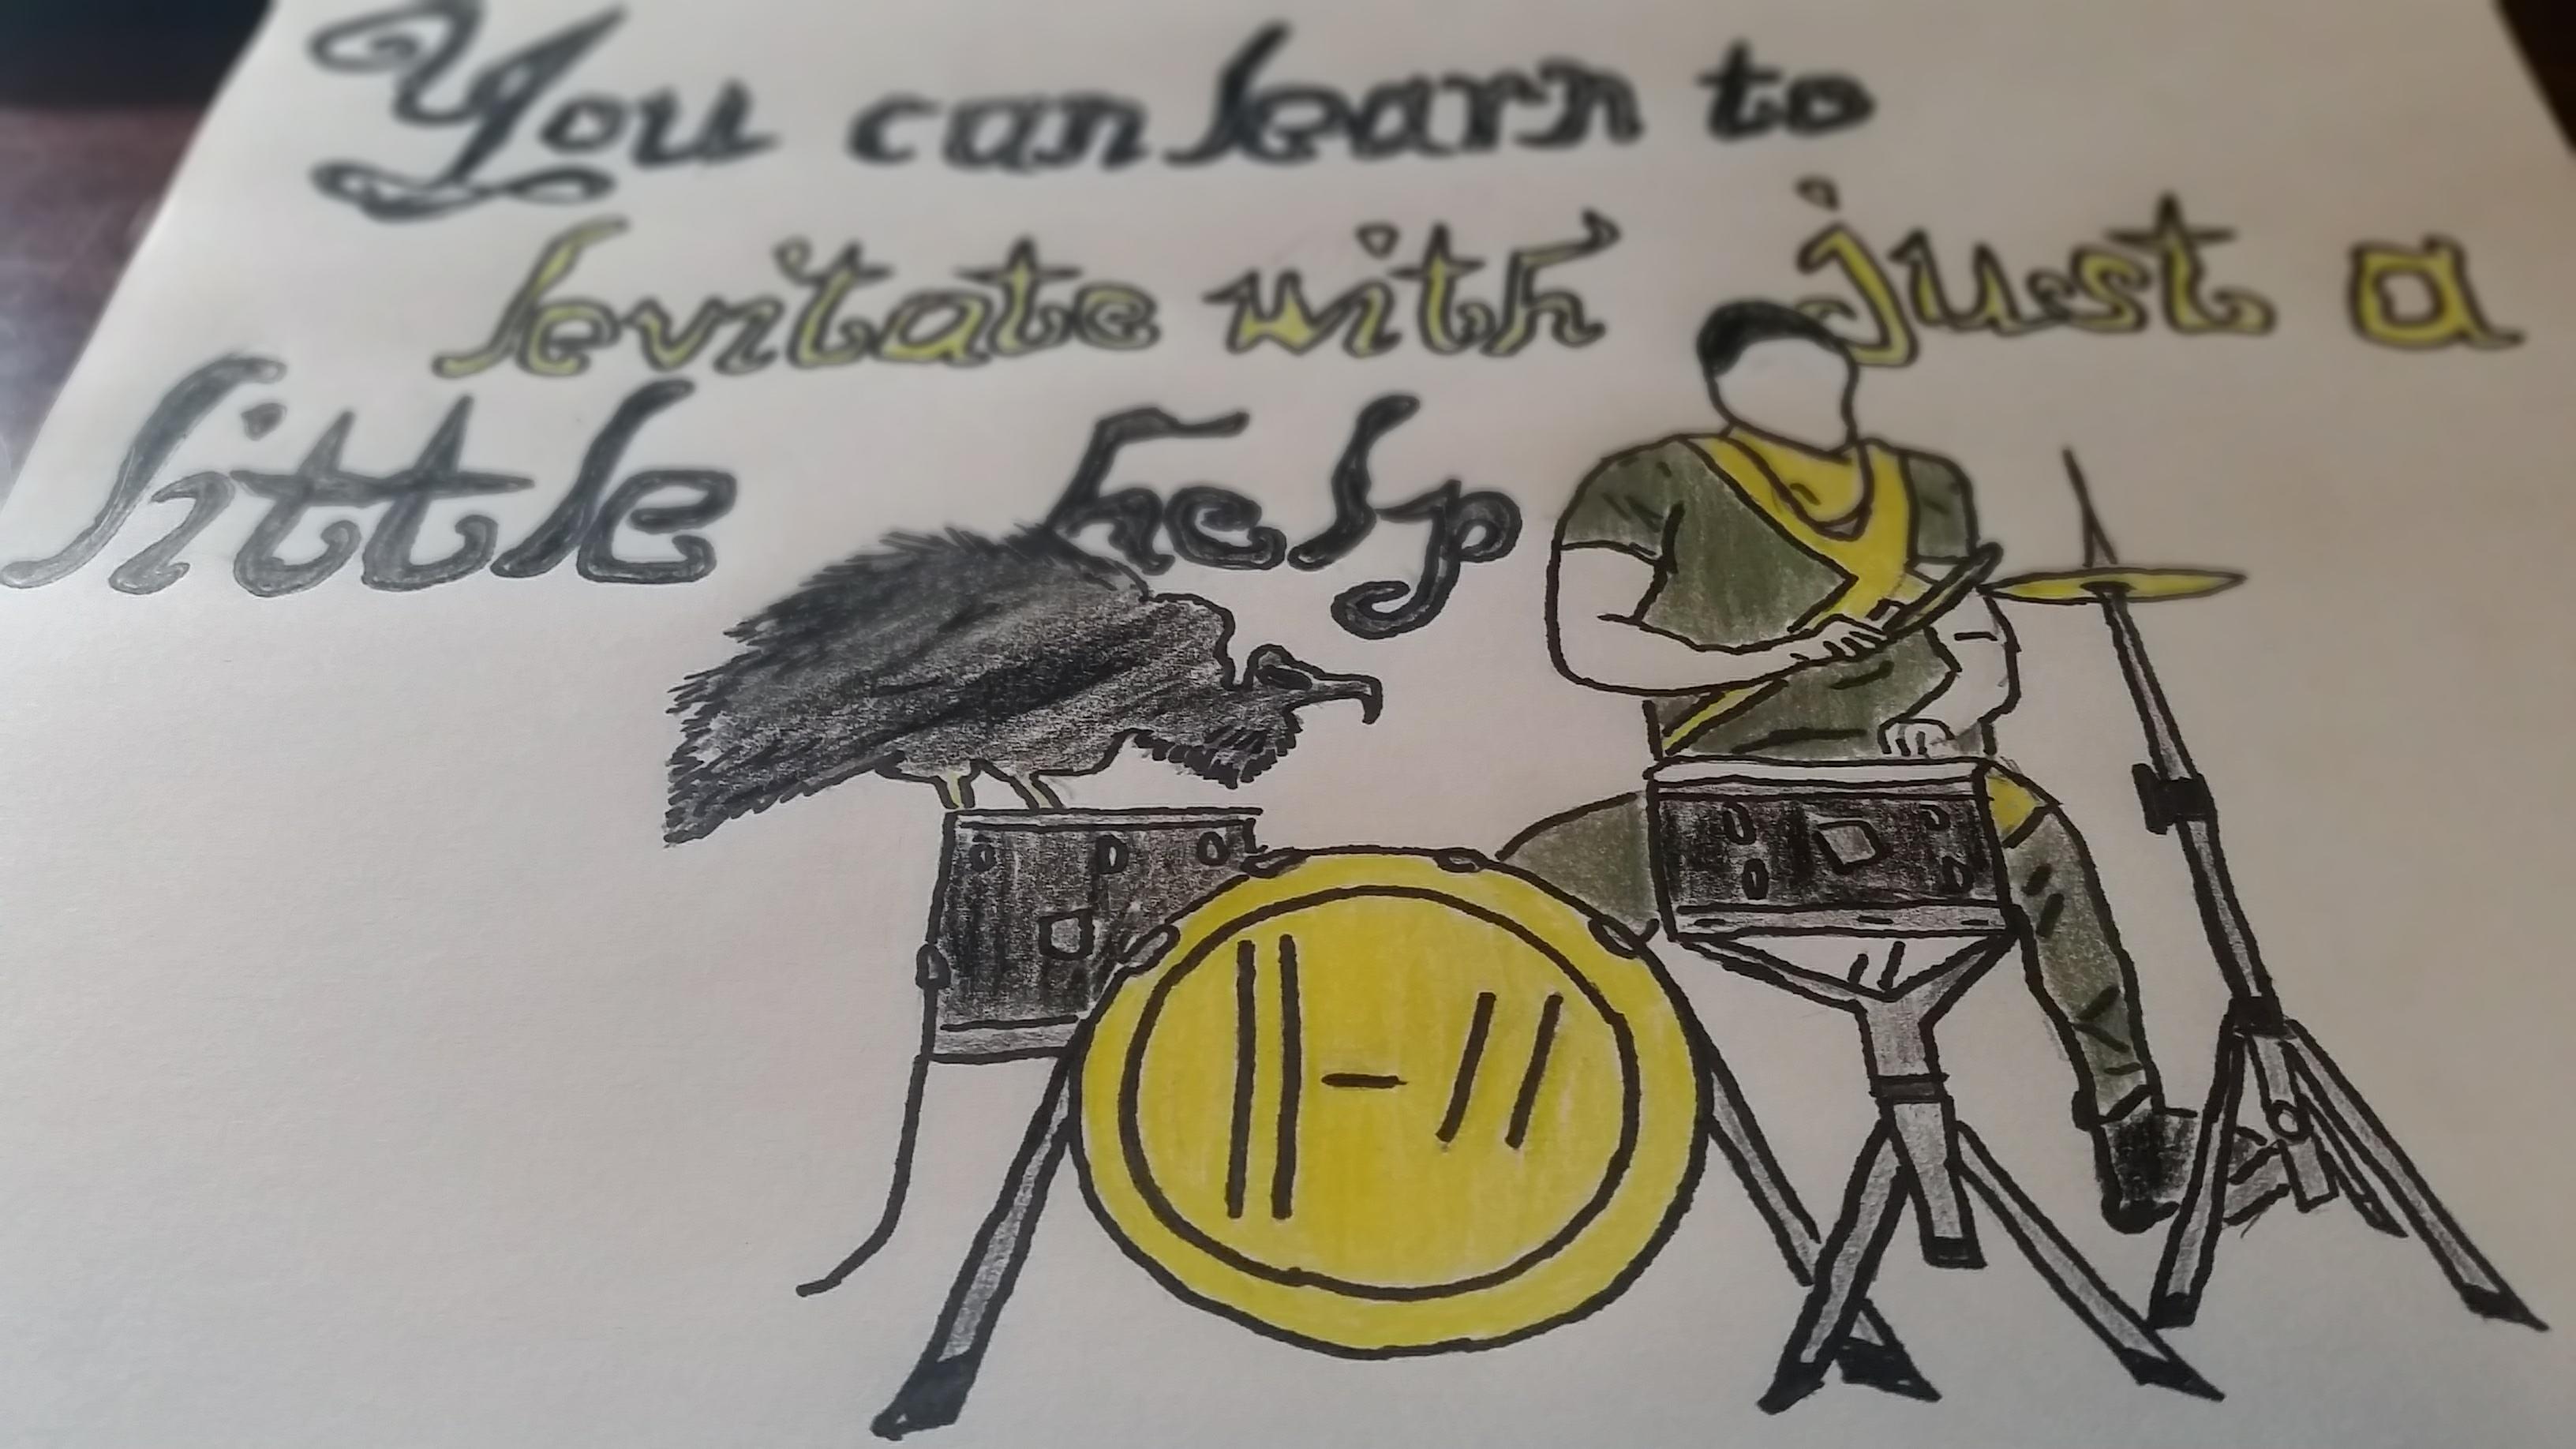 You can learn to
levitate with just a
little help
||-//